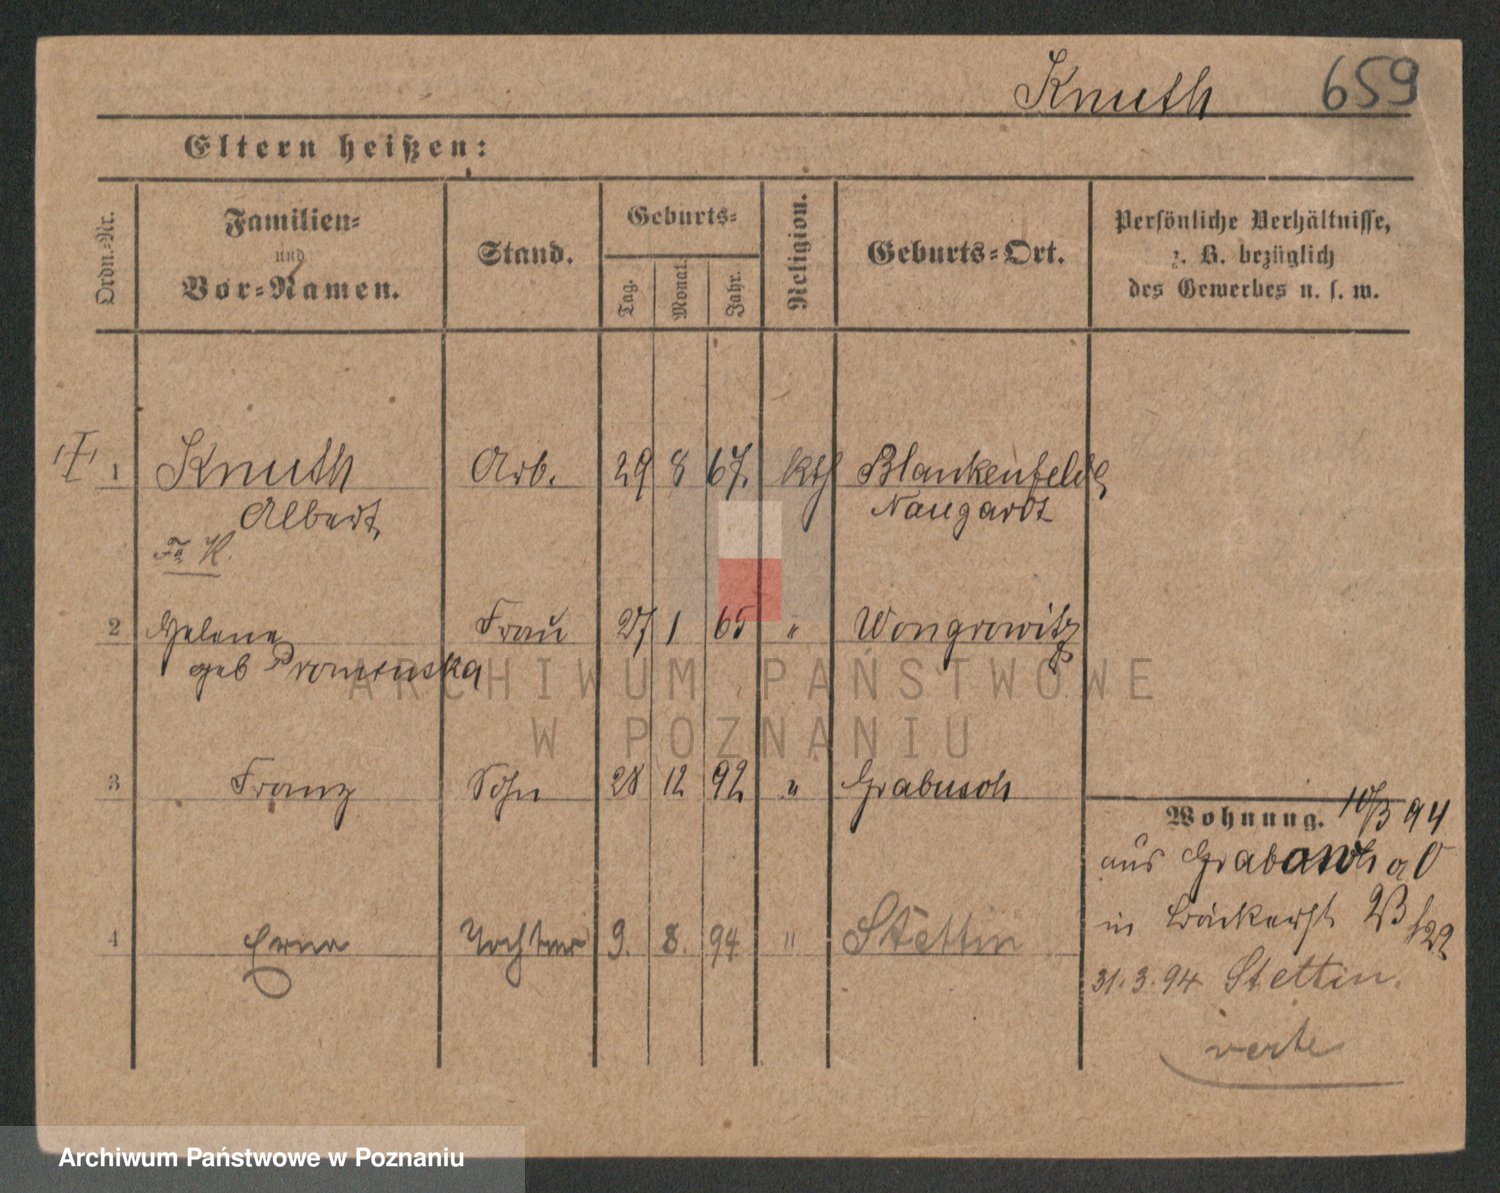 Knuth 659
Eltern heißen:
Ordn.-Nr.
Familien-
und
Vor-Namen.
Stand.
Geburts-
Tag.
Monat.
Jahr.
Religion.
Geburts-Ort.
Persönliche Verhältnisse,
z. B. bezüglich
des Gewerbes u. s. w.
1 Knuth Arb. 29 8 67. kth Blankenfelde
Albert Naugardt
2 Helene Frau 27 1 65 " Wongrowitz
geb
3 Franz Sohn 28 12 92 " Grabusch
Wohnung. 10/3 94
aus a 0
in 23
4 Erna Tochter 9. 8. 94 " Stettin
31.3.94 Stettin.
verte
ARCHIWUM PAŃSTWOWE
W POZNANIU
Archiwum Państwowe w Poznaniu